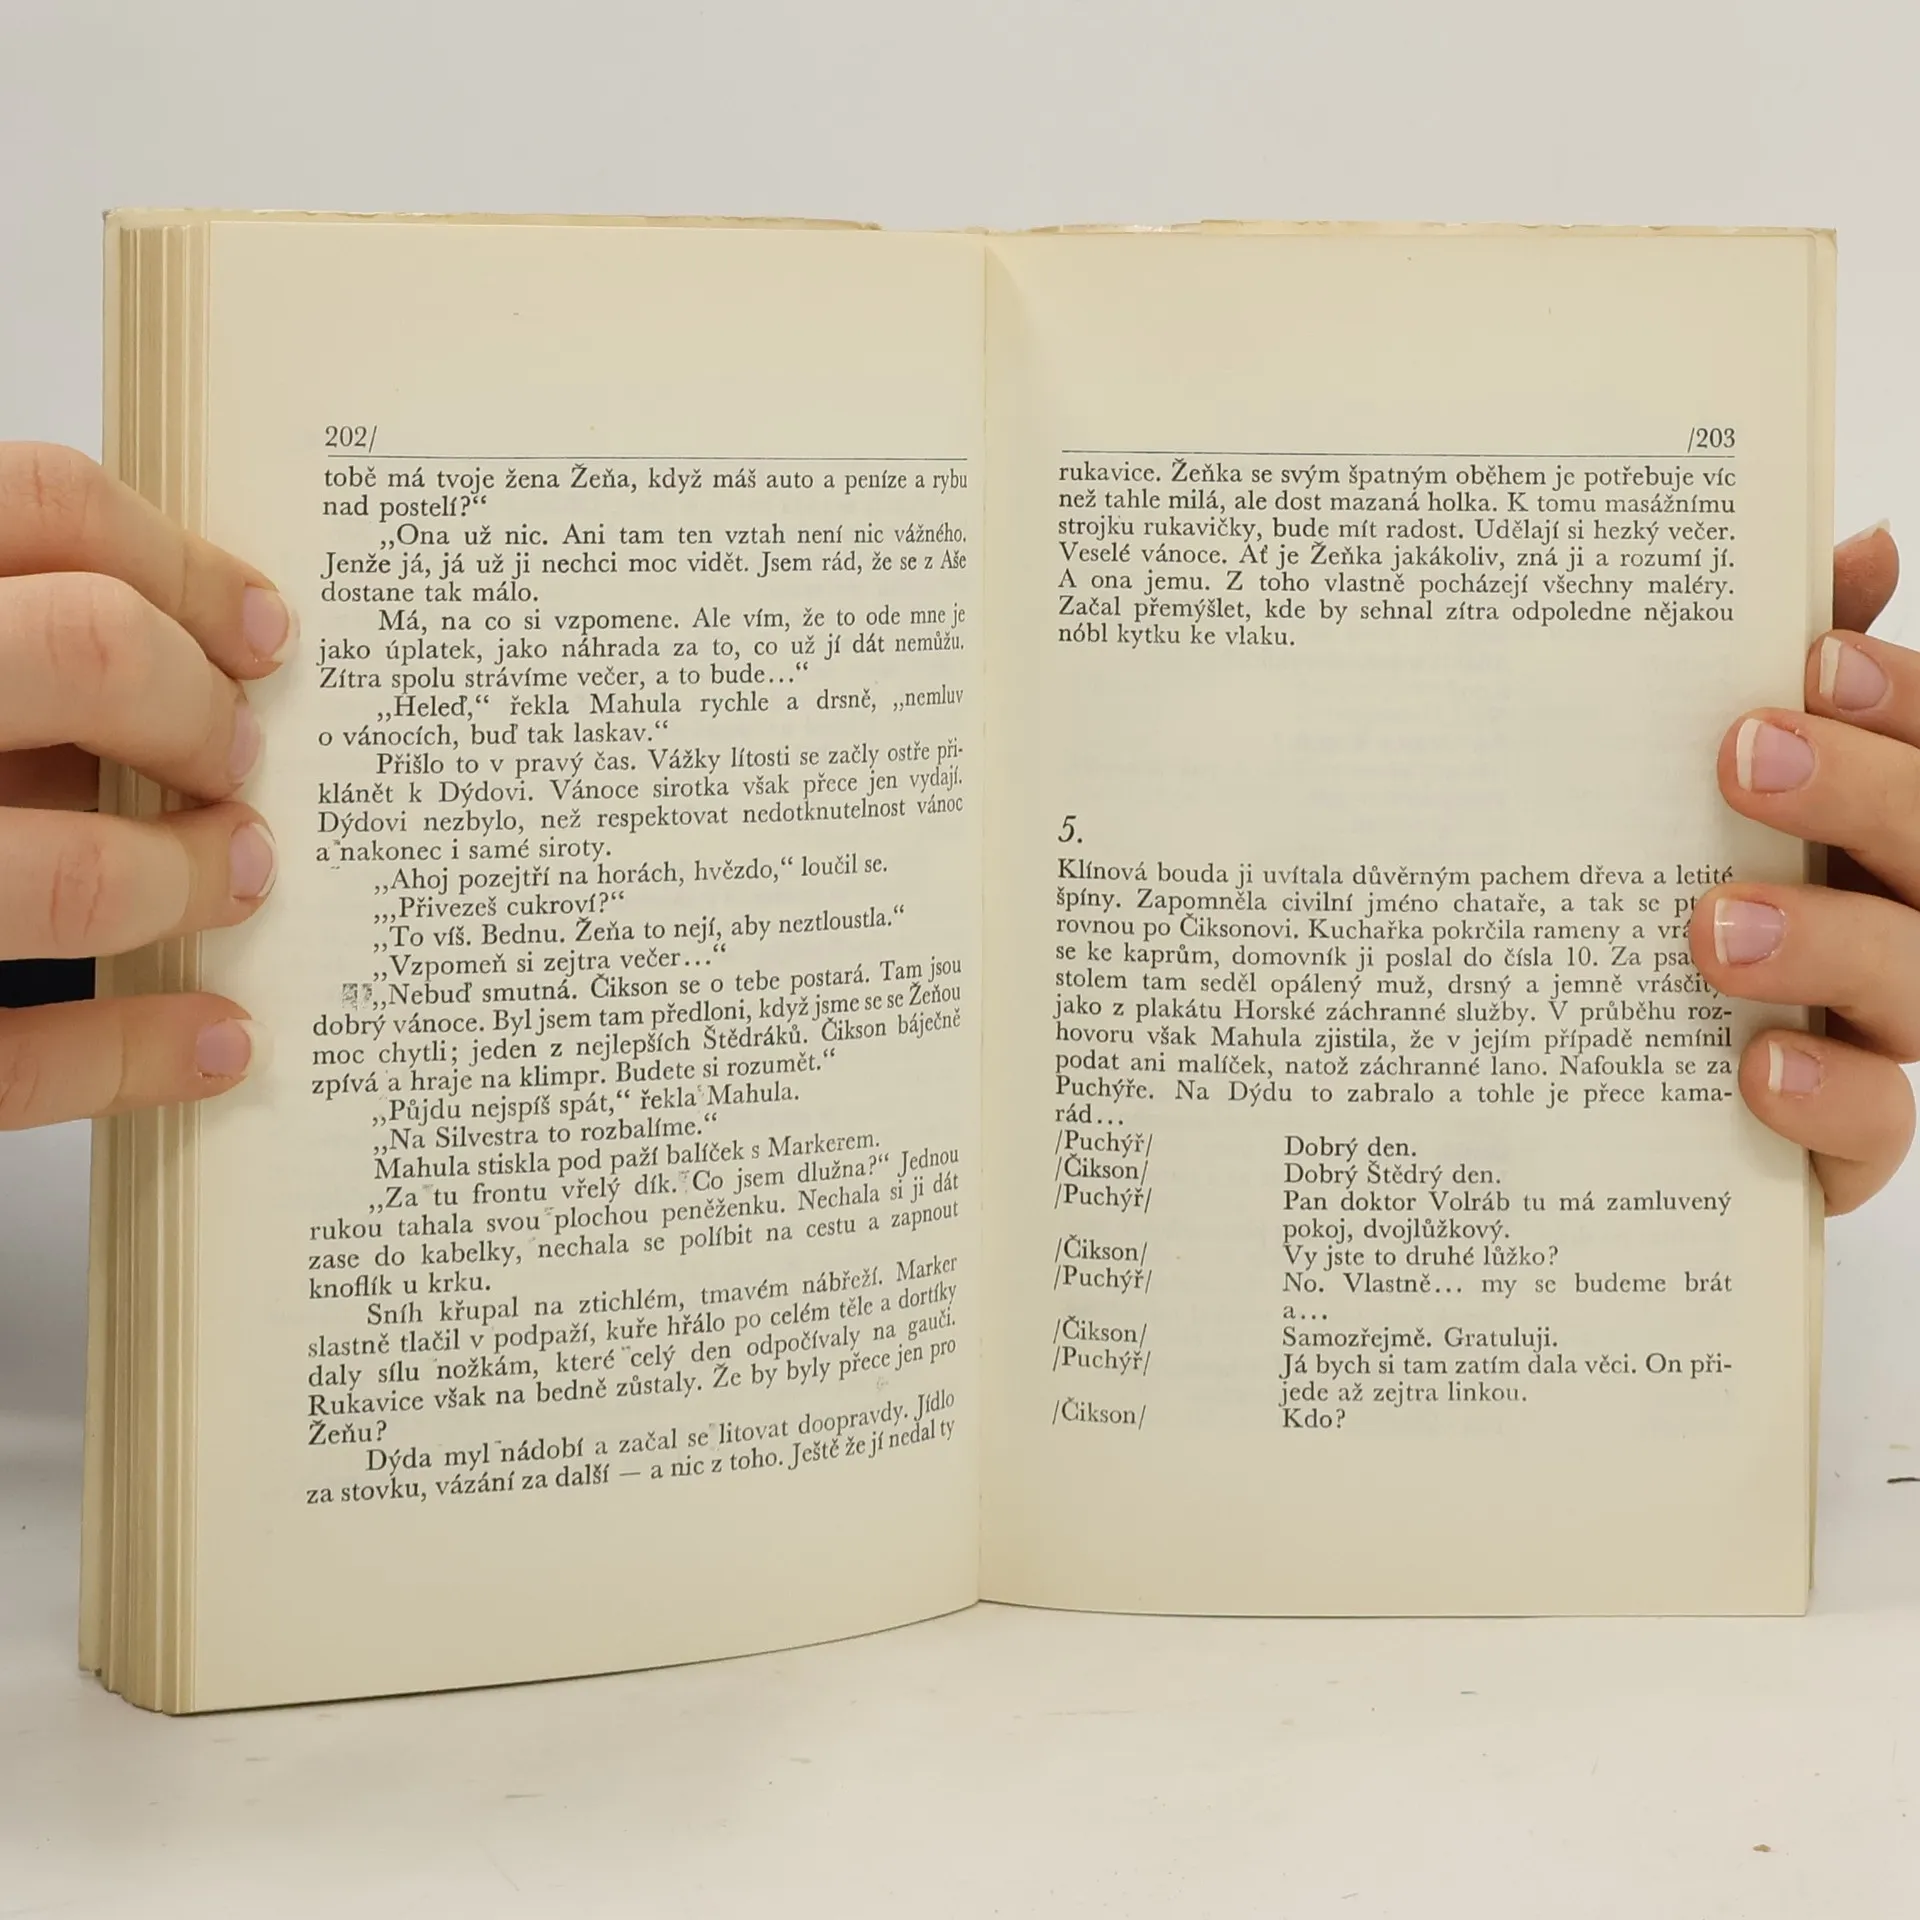 202/
tobě má tvoje žena Žeňa, když máš auto a peníze a rybu
nad postelí?“
„Ona už nic. Ani tam ten vztah není nic vážného.
Jenže já, já už ji nechci moc vidět. Jsem rád, že se z Aše
dostane tak málo.
Má, na co si vzpomene. Ale vím, že to ode mne je
jako úplatek, jako náhrada za to, co už jí dát nemůžu.
Zítra spolu strávíme večer, a to bude...“
„Heleď,“ řekla Mahula rychle a drsně, „nemluv
o vánocích, buď tak laskav.“
Přišlo to v pravý čas. Vážky lítosti se začly ostře při-
klánět k Dýdovi. Vánoce sirotka však přece jen vydají.
Dýdovi nezbylo, než respektovat nedotknutelnost vánoc
a nakonec i samé siroty.
„Ahoj pozejtří na horách, hvězdo,“ loučil se.
„,Přivezeš cukroví?“
„To víš. Bednu. Žeňa to nejí, aby neztloustla.“
„Vzpomeň si zejtra večer...“
„Nebuď smutná. Čikson se o tebe postará. Tam jsou
dobrý vánoce. Byl jsem tam předloni, když jsme se se Žeňou
moc chytli; jeden z nejlepších Štědráků. Čikson báječně
zpívá a hraje na klimpr. Budete si rozumět.“
„Půjdu nejspíš spát,“ řekla Mahula.
„Na Silvestra to rozbalíme.“
Mahula stiskla pod paží balíček s Markerem.
„Za tu frontu vřelý dík. Co jsem dlužna?“ Jednou
rukou tahala svou plochou peněženku. Nechala si ji dát
zase do kabelky, nechala se políbit na cestu a zapnout
knoflík u krku.
Sníh křupal na ztichlém, tmavém nábřeží. Marker
slastně tlačil v podpaží, kuře hřálo po celém těle a dortíky
daly sílu nožkám, které celý den odpočívaly na gauči.
Rukavice však na bedně zůstaly. Že by byly přece jen pro
Žeňu?
Dýda myl nádobí a začal se litovat doopravdy. Jídlo
za stovku, vázání za další — a nic z toho. Ještě že jí nedal ty
/203
rukavice. Žeňka se svým špatným oběhem je potřebuje víc
než tahle milá, ale dost mazaná holka. K tomu masážnímu
strojku rukavičky, bude mít radost. Udělají si hezký večer.
Veselé vánoce. Ať je Žeňka jakákoliv, zná ji a rozumí jí.
A ona jemu. Z toho vlastně pocházejí všechny maléry.
Začal přemýšlet, kde by sehnal zítra odpoledne nějakou
nóbl kytku ke vlaku.
5.
Klínová bouda ji uvítala důvěrným pachem dřeva a letité
špíny. Zapomněla civilní jméno chataře, a tak se
rovnou po Čiksonovi. Kuchařka pokrčila rameny a
se ke kaprům, domovník ji poslal do čísla 10. Za
stolem tam seděl opálený muž, drsný a jemně
jako z plakátu Horské záchranné služby. V průběhu roz-
hovoru však Mahula zjistila, že v jejím případě nemínil
podat ani malíček, natož záchranné lano. Nafoukla se za
Puchýře. Na Dýdu to zabralo a tohle je přece kama-
rád...
/Puchýř/ Dobrý den.
/Čikson/ Dobrý Štědrý den.
/Puchýř/ Pan doktor Volráb tu má zamluvený
pokoj, dvojlůžkový.
/Čikson/ Vy jste to druhé lůžko?
/Puchýř/ No. Vlastně... my se budeme brát
a...
/Čikson/ Samozřejmě. Gratuluji.
/Puchýř/ Já bych si tam zatím dala věci. On při-
jede až zejtra linkou.
/Čikson/ Kdo?